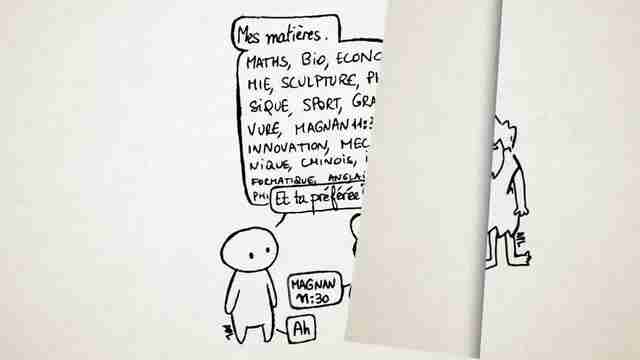 Mes matières.
MATHS, BIO, ECONO
MIE, SCULPTURE,
SIQUE, SPORT, GRA
VURE, MAGNAN 11:3
INNOVATION, MEC
NIQUE, CHINOIS,
FORMATIQUE, ANGLA
Et ta préférée?
MAGNAN
11:30
Ah